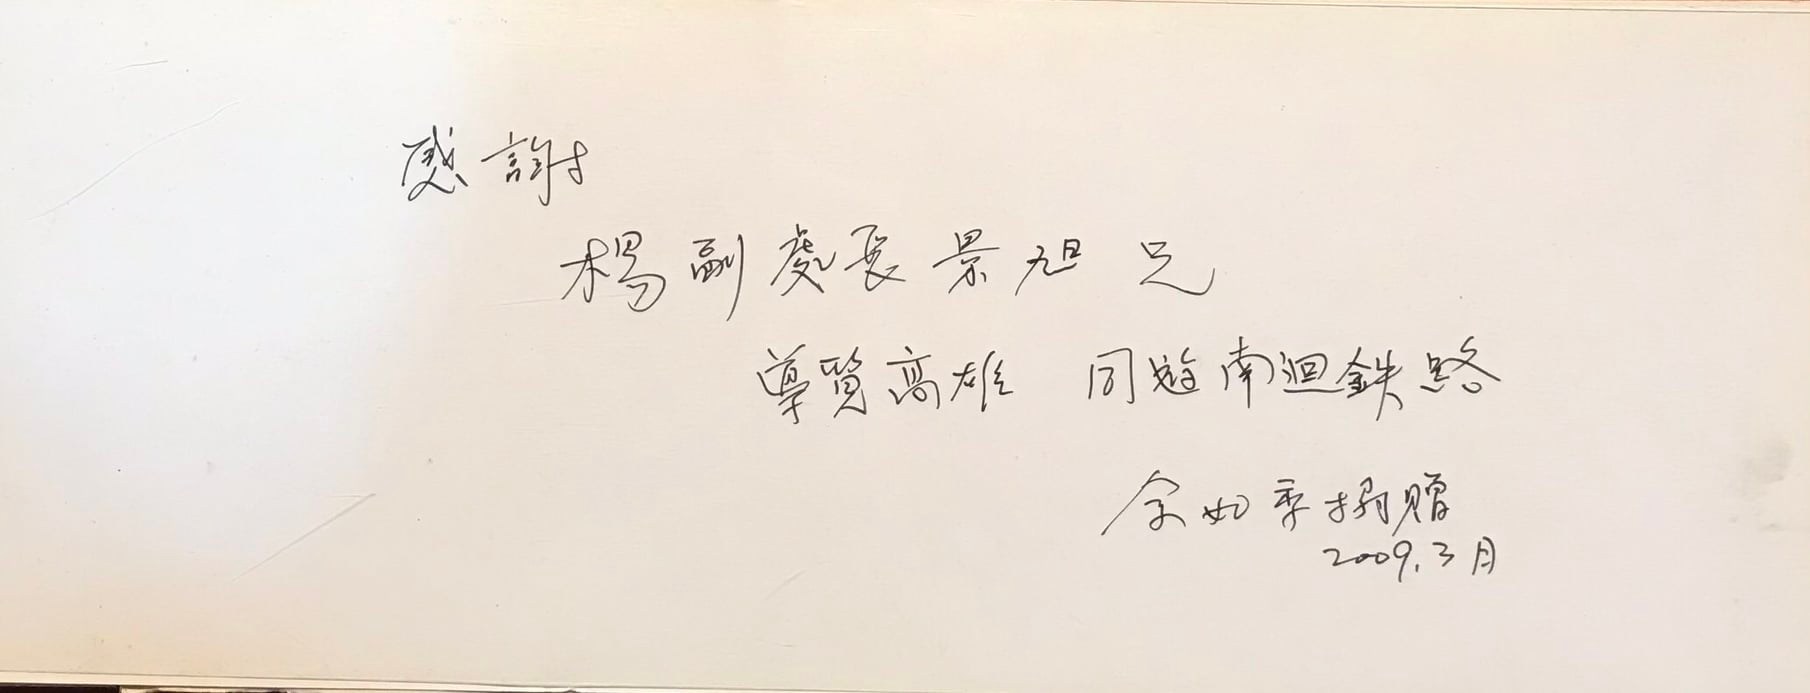 感謝
楊副處長景旭兄
導覽高雄 同遊南迴鉄路
余如季攝贈
2009.3月